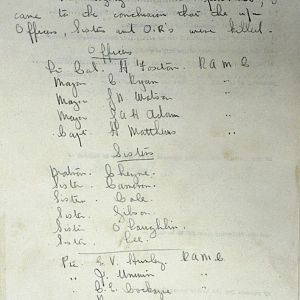 came to the conclusion that the u/m
Officers, Sisters and O.R's were killed.
Officers
Lt. Col. H R A M C
Major C. Ryan "
Major J N Watson "
Major G A H Adam "
Capt. H Matthews "
Sisters
Matron Cheyne.
Sister Cameron.
Sister Cole
Sister Gibson
Sister O'Laughlin.
Sister Lee.
Pte. E V. Hurley R A M C
" J. Unwin "
" C. E. "